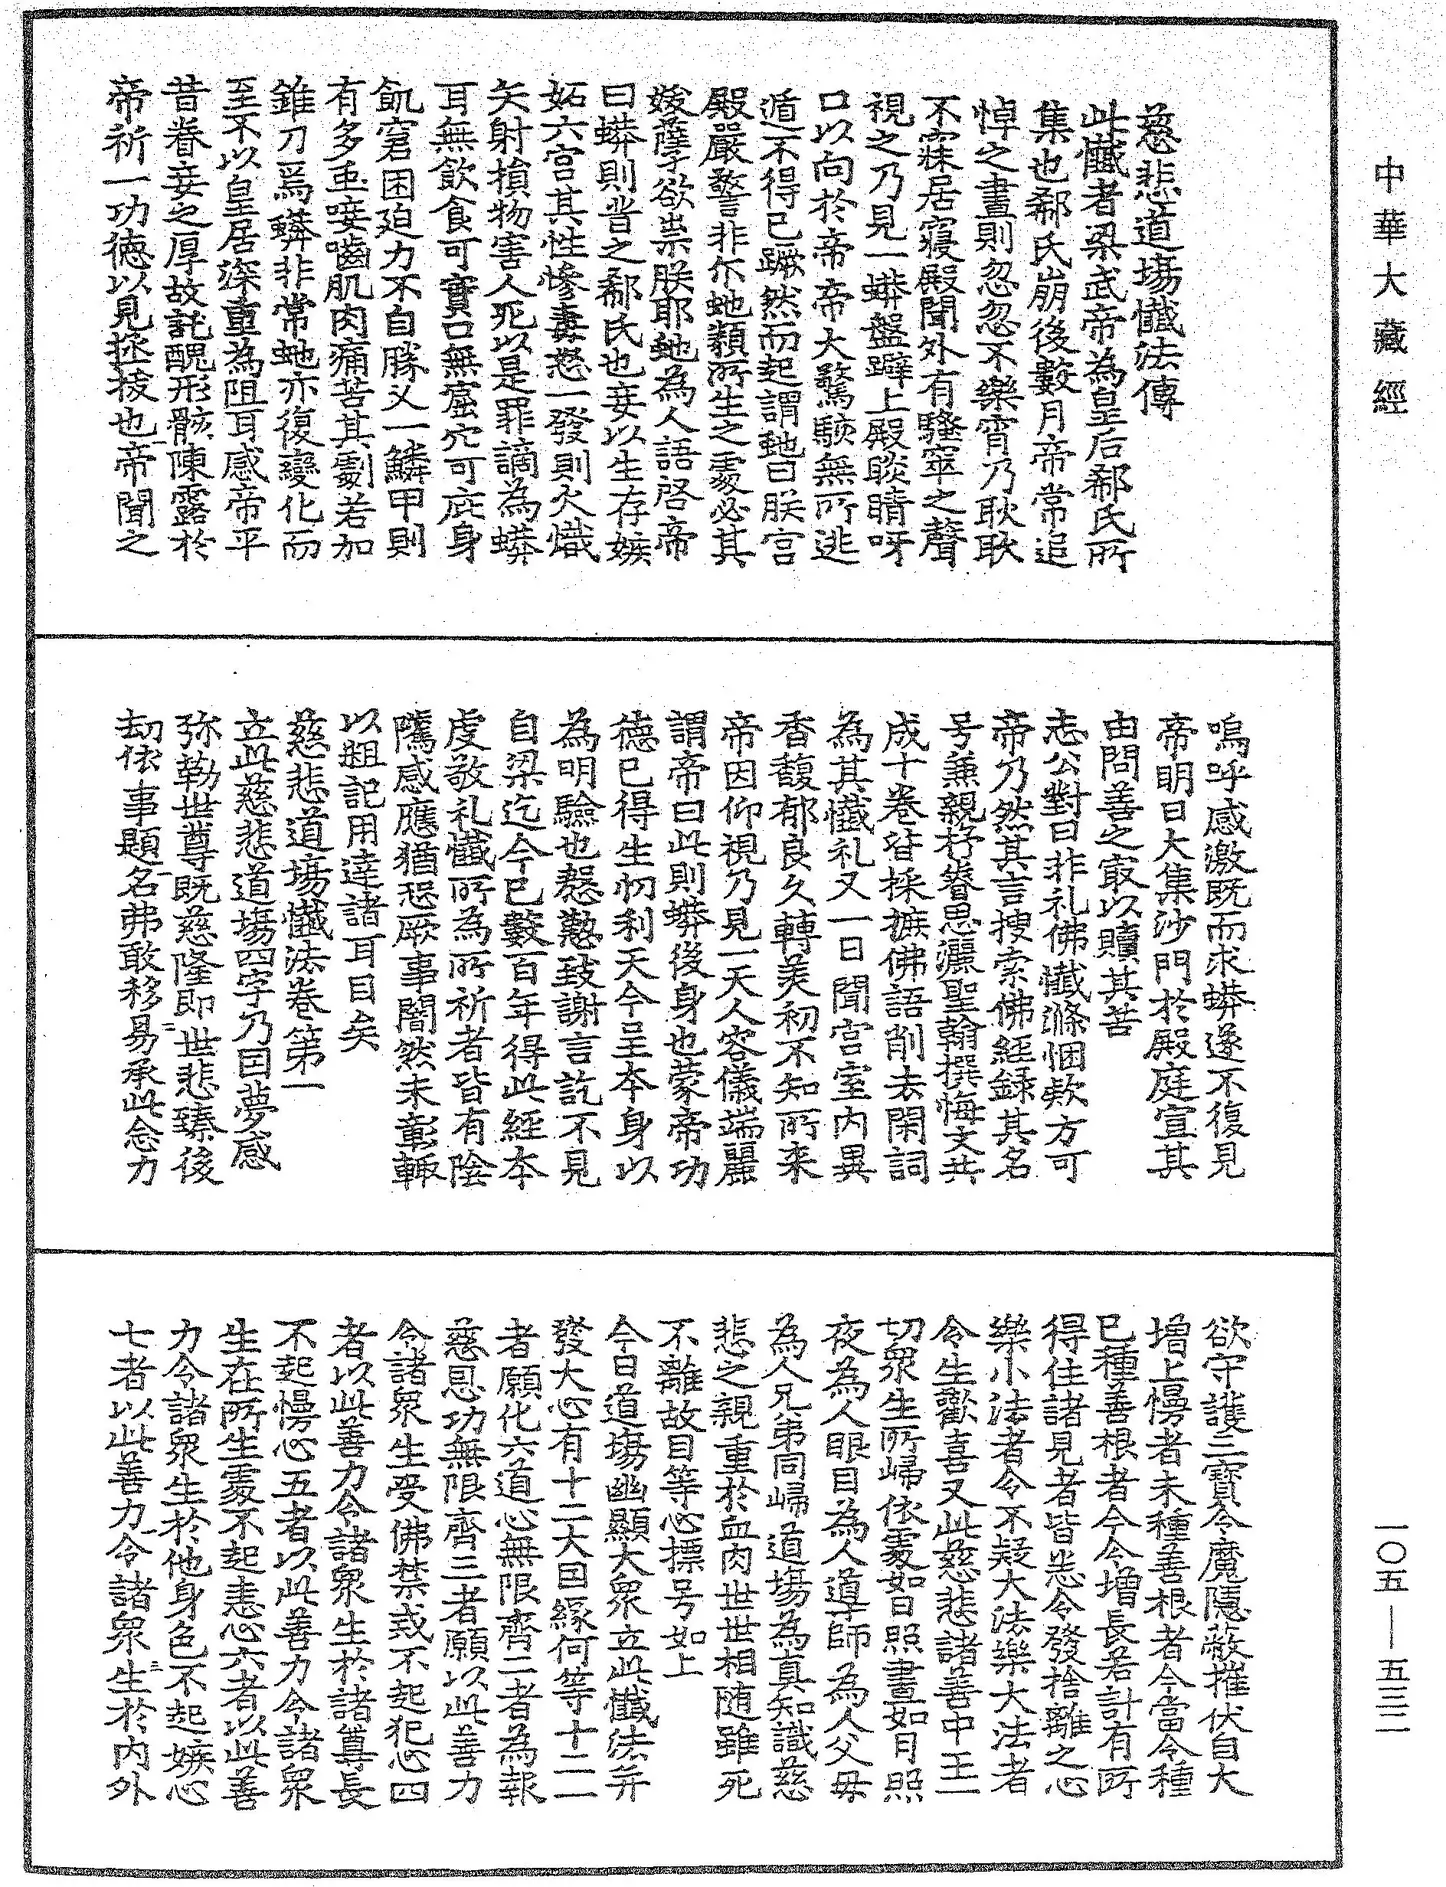 中華大藏經
慈悲道場懺法傳
此懺者梁武帝為皇后郗氏所
集也郗氏崩後數月帝常追
悼之晝則忽忽不樂宵乃耿耿
不寐居寢殿聞外有騷窣之聲
視之乃見一蟒盤躃上殿睒睛呀
口以向於帝帝大驚駭無所逃
遁不得已蹶然而起謂虵曰朕宮
殿嚴警非尓虵類所生之處必其
妖孽欲祟朕耶虵為人語啓帝
曰蟒則昔之郗氏也妾以生存嫉
妬六宮其性慘毒怒一發則火熾
矢射損物害人死以是罪謫為蟒
耳無飲食可實口無窟穴可庇身
飢窘困迫力不自勝又一鱗甲則
有多虫唼嚙肌肉痛苦其劇若加
錐刀焉蟒非常虵亦復變化而
至不以皇居深重為阻耳感帝平
昔眷妾之厚故託醜形骸陳露於
帝祈一功德以見拯拔也帝聞之
嗚呼感激既而求蟒遂不復見
帝明日大集沙門於殿庭宣其
由問善之冣以贖其苦
志公對曰非礼佛懺滌悃欵方可
帝乃然其言搜索佛經録其名
号兼親抒睿思灑聖翰撰悔文共
成十卷皆採摭佛語削去閑詞
為其懺礼又一日聞宮室内異
香馥郁良久轉美初不知所来
帝因仰視乃見一天人容儀端麗
謂帝曰此則蟒後身也蒙帝功
德已得生忉利天今呈本身以
為明驗也慇懃致謝言訖不見
自梁迄今已數百年得此經本
虔敬礼懺所為所祈者皆有陰
隲感應猶恐厥事闇然未彰輙
以粗記用達諸耳目矣
慈悲道場懺法卷第一
立此慈悲道場四字乃因夢感
弥勒世尊既慈隆即世悲臻後
劫依事題名弗敢移易承此念力
欲守護三寶令魔隱蔽摧伏自大
增上慢者未種善根者今當令種
已種善根者今令增長若計有所
得住諸見者皆悉令發捨離之心
樂小法者令不疑大法樂大法者
令生歡喜又此慈悲諸善中王一
切衆生所歸依處如日照晝如月照
夜為人眼目為人導師為人父母
為人兄弟同歸道場為真知識慈
悲之親重於血肉世世相随雖死
不離故目等心摽号如上
今日道場幽顯大衆立此懺法并
發大心有十二大因緣何等十二一
者願化六道心無限齊二者為報
慈恩功無限齊三者願以此善力
令諸衆生受佛禁戒不起犯心四
者以此善力令諸衆生於諸尊長
不起慢心五者以此善力令諸衆
生在所生處不起恚心六者以此善
力令諸衆生於他身色不起嫉心
七者以此善力令諸衆生於内外
一〇五—五三二